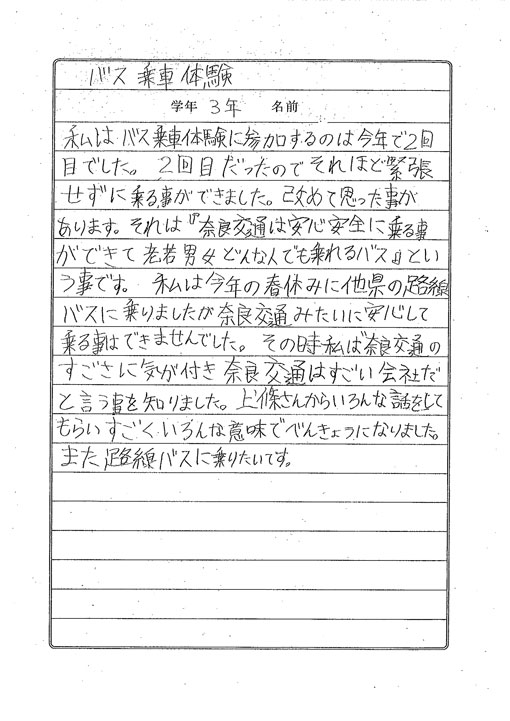 バス乗車体験
学年 3年 名前
私はバス乗車体験に参加するのは今年で2回
目でした。2回目だったのでそれほど緊張
せずに乗る事ができました。改めて思った事が
あります。それは『奈良交通は安心安全に乗る事
ができて老若男女どんな人でも乗れるバス』とい
う事です。私は今年の春休みに他県の路線
バスに乗りましたが奈良交通みたいに安心して
乗る事はできませんでした。その時私は奈良交通の
すごさに気が付き奈良交通はすごい会社だ
と言う事を知りました。上條さんからいろんな話をして
もらいすごくいろんな意味でべんきょうになりました。
また路線バスに乗りたいです。